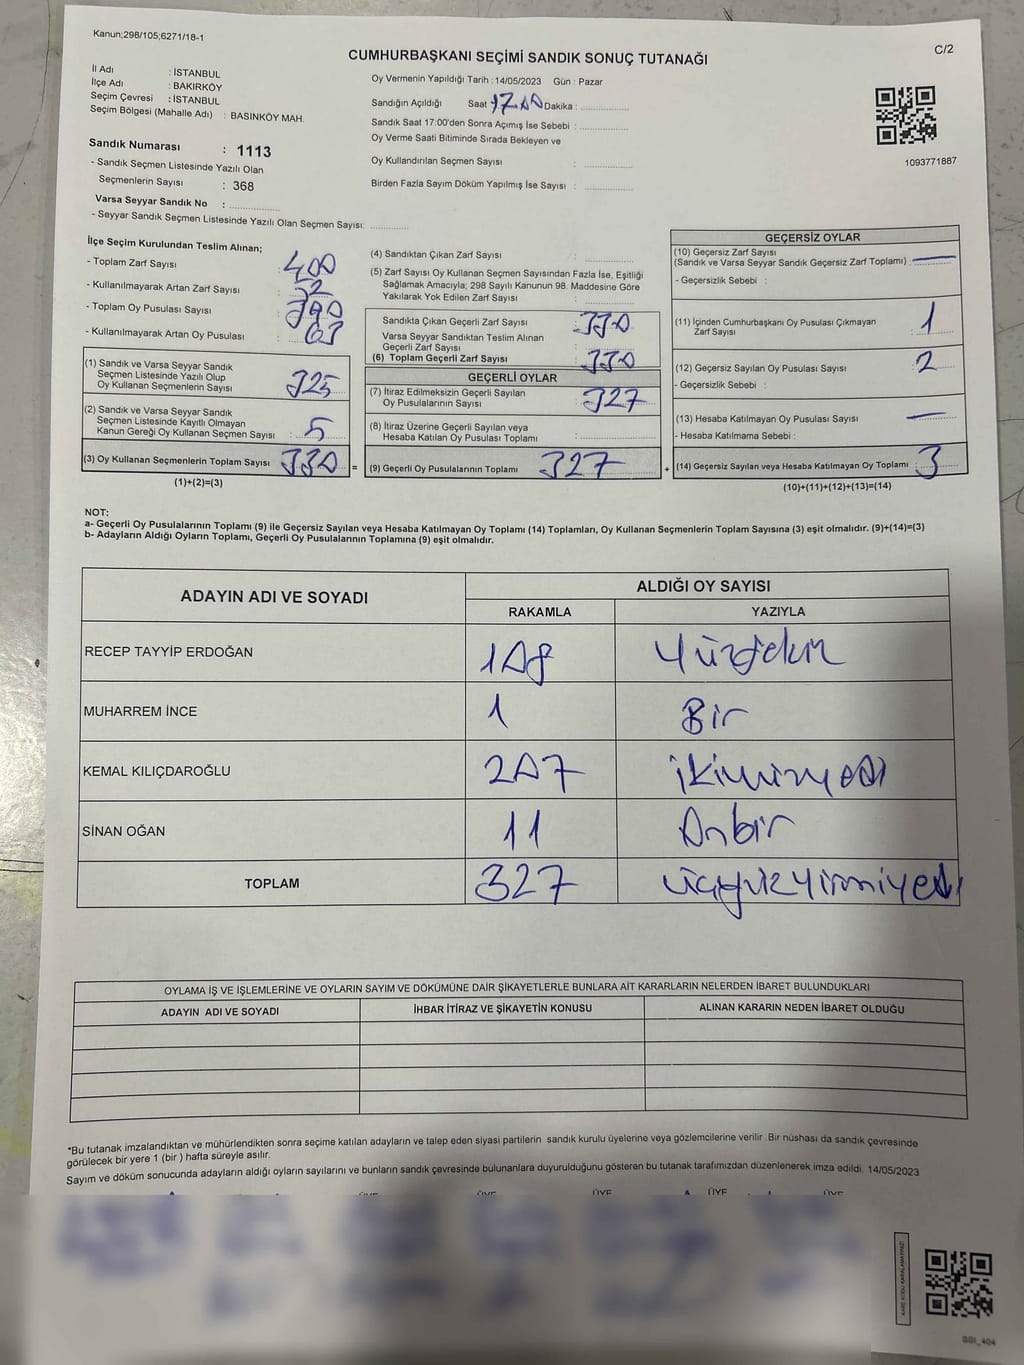 Kanun;298/105;6271/18-1
C/2
CUMHURBAŞKANI SEÇİMİ SANDIK SONUÇ TUTANAĞI
İl Adı : İSTANBUL
İlçe Adı : BAKIRKÖY
Seçim Çevresi : İSTANBUL
Seçim Bölgesi (Mahalle Adı) : BASINKÖY MAH.
Sandık Numarası : 1113
- Sandık Seçmen Listesinde Yazılı Olan
Seçmenlerin Sayısı : 368
Varsa Seyyar Sandık No :
- Seyyar Sandık Seçmen Listesinde Yazılı Olan Seçmen Sayısı:
Oy Vermenin Yapıldığı Tarih : 14/05/2023 Gün : Pazar
Sandığın Açıldığı Saat 17.00 Dakika :
Sandık Saat 17:00'den Sonra Açımış İse Sebebi :
Oy Verme Saati Bitiminde Sırada Bekleyen ve
Oy Kullandırılan Seçmen Sayısı :
Birden Fazla Sayım Döküm Yapılmış İse Sayısı :
1093771887
İlçe Seçim Kurulundan Teslim Alınan;
- Toplam Zarf Sayısı : 400
- Kullanılmayarak Artan Zarf Sayısı :
- Toplam Oy Pusulası Sayısı : 390
- Kullanılmayarak Artan Oy Pusulası : 63
(1) Sandık ve Varsa Seyyar Sandık
Seçmen Listesinde Yazılı Olup
Oy Kullanan Seçmenlerin Sayısı : 325
(2) Sandık ve Varsa Seyyar Sandık
Seçmen Listesinde Kayıtlı Olmayan
Kanun Gereği Oy Kullanan Seçmen Sayısı : 5
(3) Oy Kullanan Seçmenlerin Toplam Sayısı : 330 =
(1)+(2)=(3)
(4) Sandıktan Çıkan Zarf Sayısı :
(5) Zarf Sayısı Oy Kullanan Seçmen Sayısından Fazla İse, Eşitliği
Sağlamak Amacıyla; 298 Sayılı Kanunun 98. Maddesine Göre
Yakılarak Yok Edilen Zarf Sayısı :
Sandıkta Çıkan Geçerli Zarf Sayısı : 330
Varsa Seyyar Sandıktan Teslim Alınan
Geçerli Zarf Sayısı :
(6) Toplam Geçerli Zarf Sayısı : 330
GEÇERLİ OYLAR
(7) İtiraz Edilmeksizin Geçerli Sayılan
Oy Pusulalarının Sayısı : 327
(8) İtiraz Üzerine Geçerli Sayılan veya
Hesaba Katılan Oy Pusulası Toplamı :
(9) Geçerli Oy Pusulalarının Toplamı : 327 +
GEÇERSİZ OYLAR
(10) Geçersiz Zarf Sayısı
(Sandık ve Varsa Seyyar Sandık Geçersiz Zarf Toplamı) : —
- Geçersizlik Sebebi :
(11) İçinden Cumhurbaşkanı Oy Pusulası Çıkmayan
Zarf Sayısı : 1
(12) Geçersiz Sayılan Oy Pusulası Sayısı : 2
- Geçersizlik Sebebi :
(13) Hesaba Katılmayan Oy Pusulası Sayısı : —
- Hesaba Katılmama Sebebi :
(14) Geçersiz Sayılan veya Hesaba Katılmayan Oy Toplamı : 3
(10)+(11)+(12)+(13)=(14)
NOT:
a- Geçerli Oy Pusulalarının Toplamı (9) ile Geçersiz Sayılan veya Hesaba Katılmayan Oy Toplamı (14) Toplamları, Oy Kullanan Seçmenlerin Toplam Sayısına (3) eşit olmalıdır. (9)+(14)=(3)
b- Adayların Aldığı Oyların Toplamı, Geçerli Oy Pusulalarının Toplamına (9) eşit olmalıdır.
ADAYIN ADI VE SOYADI ALDIĞI OY SAYISI
RAKAMLA YAZIYLA
RECEP TAYYİP ERDOĞAN 108 Yüzsekiz
MUHARREM İNCE 1 Bir
KEMAL KILIÇDAROĞLU 207 ikiyüzyedi
SİNAN OĞAN 11 Onbir
TOPLAM 327 üçyüzyirmiyedi
OYLAMA İŞ VE İŞLEMLERİNE VE OYLARIN SAYIM VE DÖKÜMÜNE DAİR ŞİKAYETLERLE BUNLARA AİT KARARLARIN NELERDEN İBARET BULUNDUKLARI
ADAYIN ADI VE SOYADI İHBAR İTİRAZ VE ŞİKAYETİN KONUSU ALINAN KARARIN NEDEN İBARET OLDUĞU
*Bu tutanak imzalandıktan ve mühürlendikten sonra seçime katılan adayların ve talep eden siyasi partilerin sandık kurulu üyelerine veya gözlemcilerine verilir. Bir nüshası da sandık çevresinde
görülecek bir yere 1 (bir ) hafta süreyle asılır.
Sayım ve döküm sonucunda adayların aldığı oyların sayılarını ve bunların sandık çevresinde bulunanlara duyurulduğunu gösteren bu tutanak tarafımızdan düzenlenerek imza edildi. 14/05/2023
ÜYE ÜYE ÜYE ÜYE ÜYE